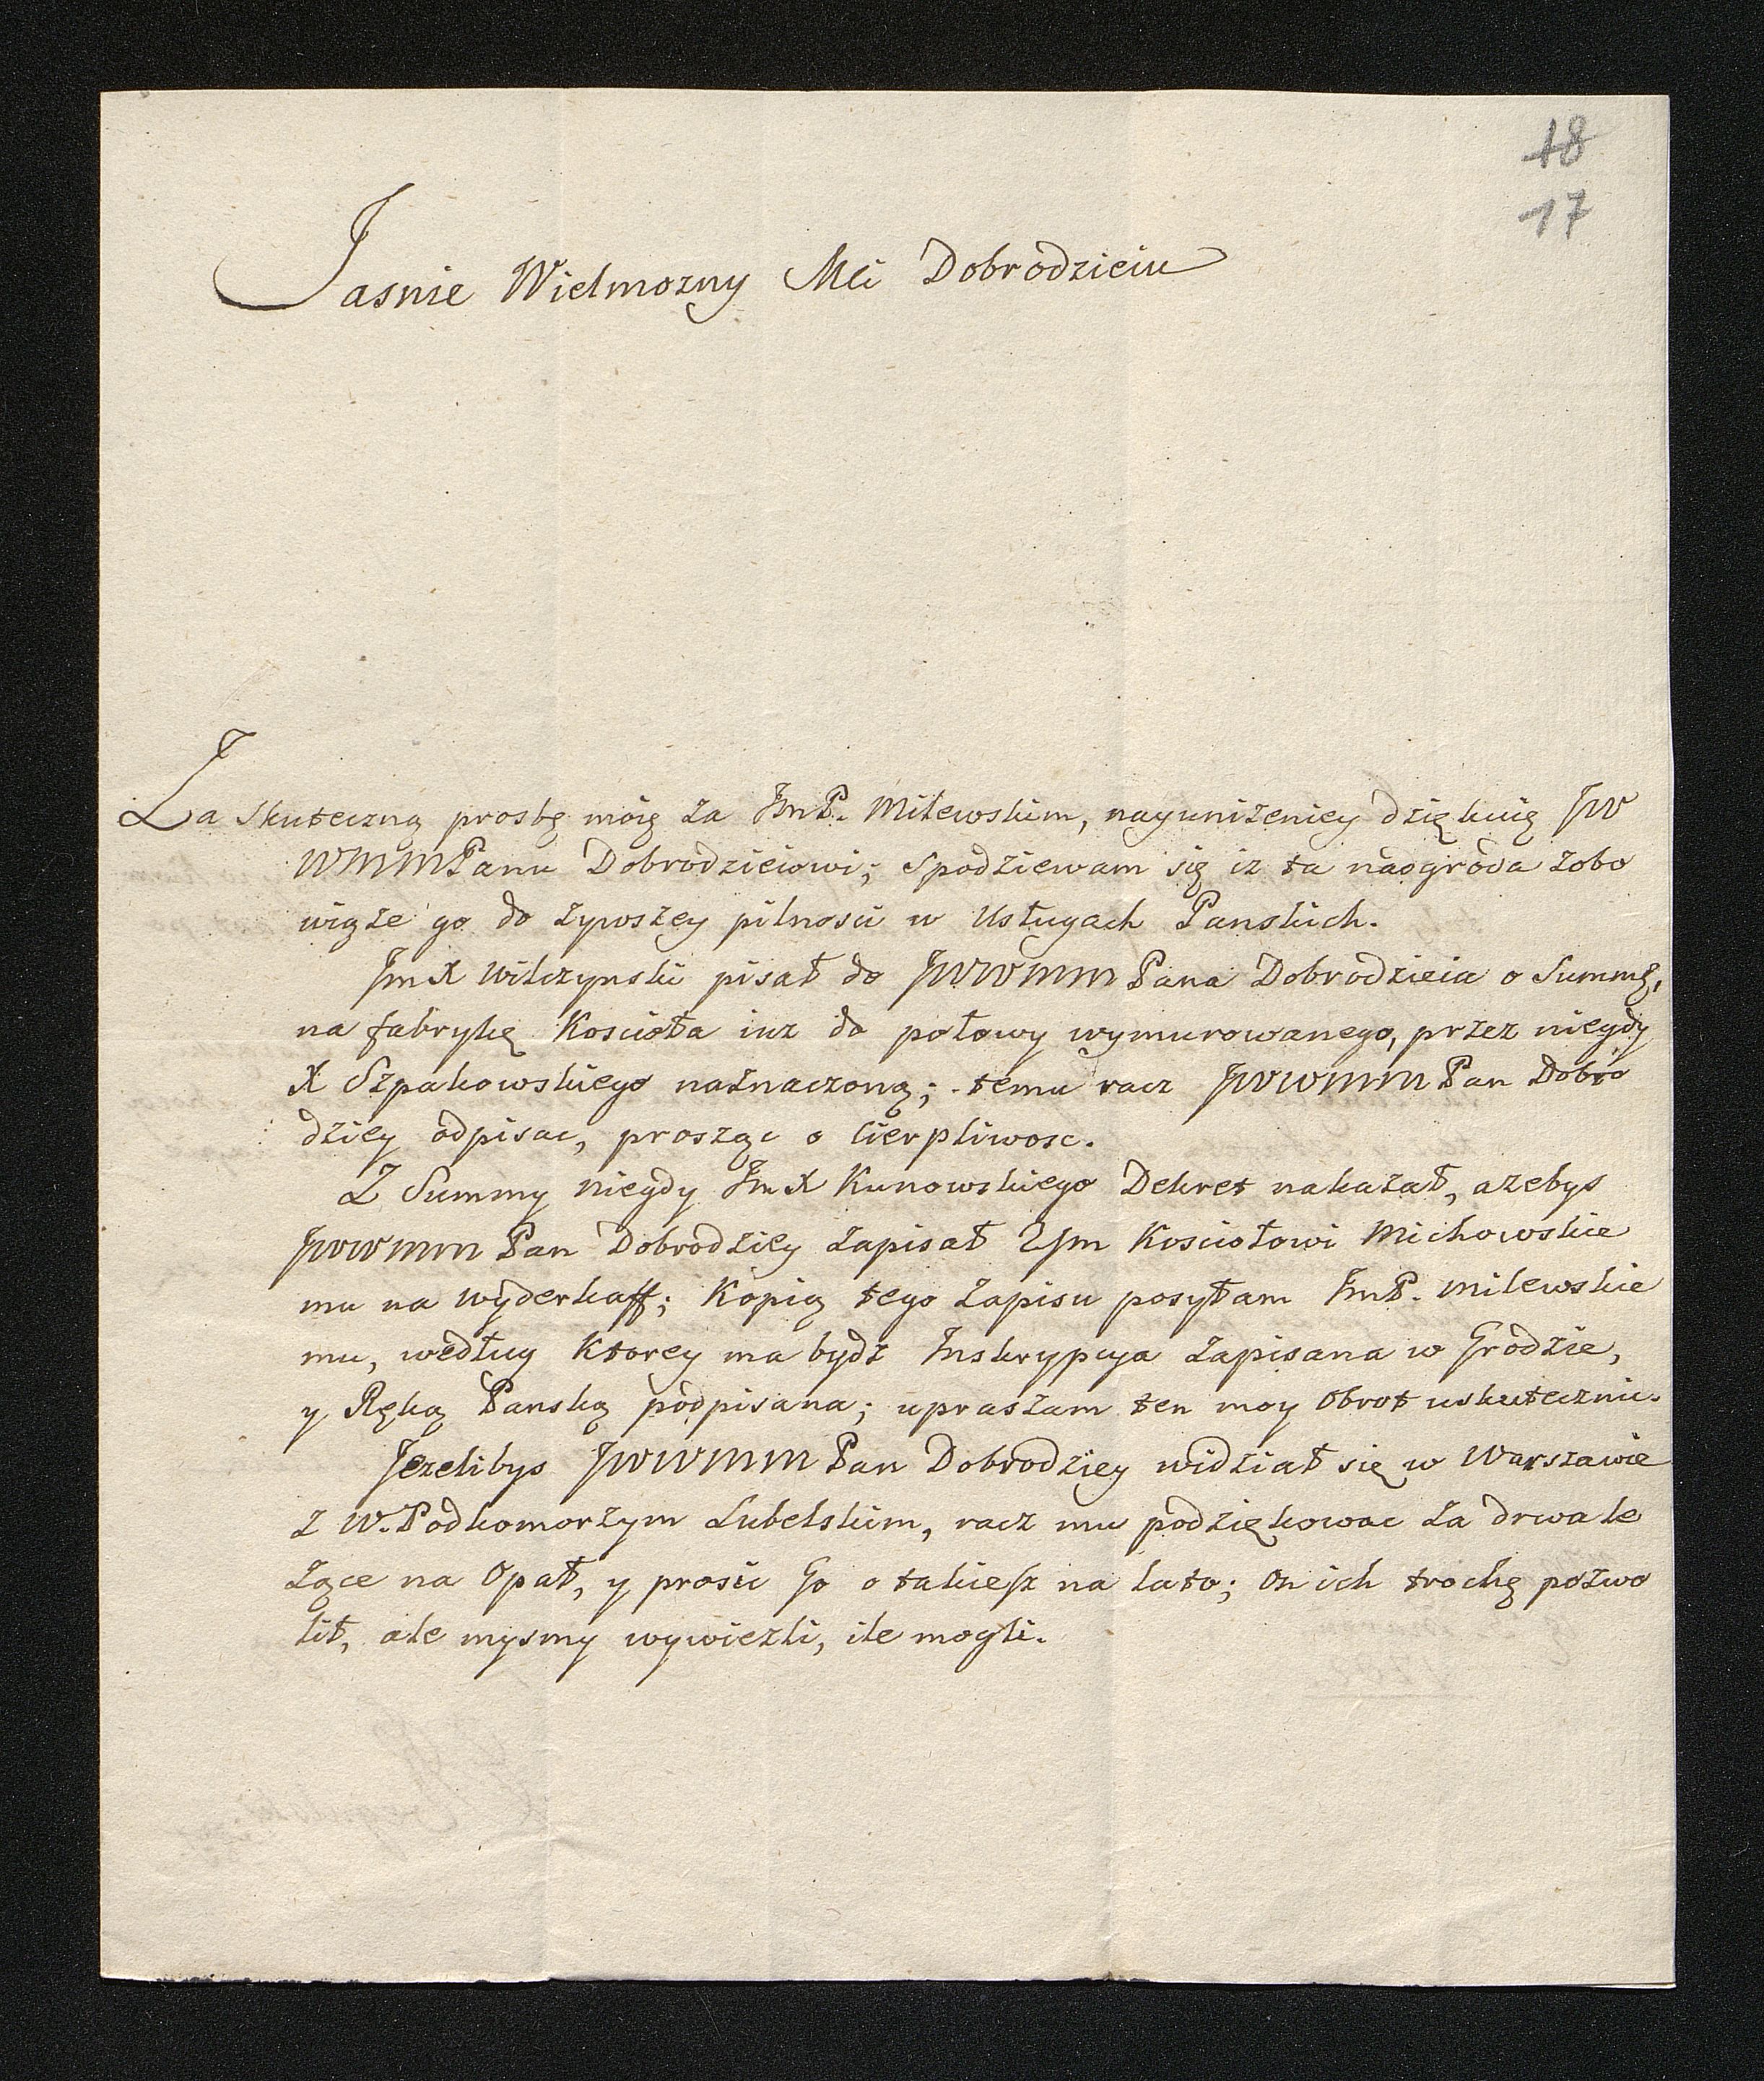 18
17
Jasnie Wielmozny Mci Dobrodzieiu
Za skuteczną prosbę moię za JmP. Milewskim, nayuniżeniey dziękuię JW
WMMPanu Dobrodzieiowi; spodziewam się iz ta nadgroda zobo
wiąże go do zywszey pilnosci w Usługach Panskich.
JmX Wilczynski pisał do JWWMM Pana Dobrodzieia o Summę,
na fabrykę Koscioła iuz do połowy wymurowanego, przez niegdy
X Szpakowskiego naznaczoną; temu racz JWWMM Pan Dobro
dziey odpisac, prosząc o cierpliwosc.
Z Summy niegdy JmX Kunowskiego Dekret nakazał, azebys
JWWMM Pan Dobrodziey zapisał 2/m Kosciołowi Michowskie
mu na wyderkaff; Kopią tego zapisu posyłam JmP. Milewskie
mu, według Ktorey ma bydz Inskrypcya zapisana w Grodzie,
y Ręką Panską podpisana; upraszam ten moy obrot uskutecznic.
Jezelibys JWWMM Pan Dobrodziey widział się w Warszawie
z W. Podkomorzym Lubelskim, racz mu podziękowac za drwa le
żące na Opał, y prosic Go o takiesz na lato; on ich trochę pozwo
lił, ale mysmy wywiezli, ile mogli.